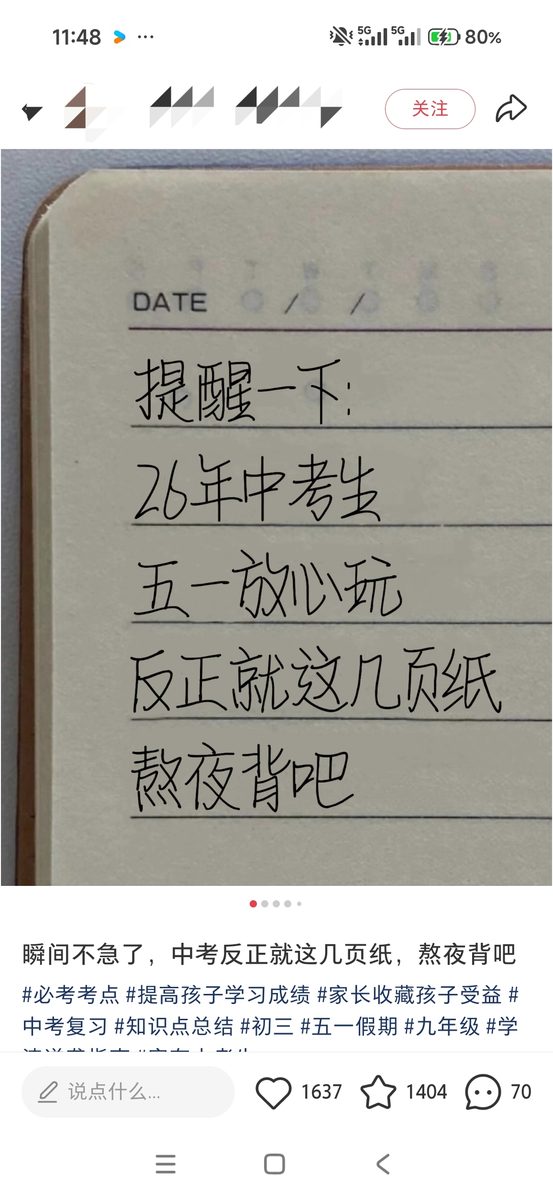 11:48
5G
5G
80%
关注
DATE / /
提醒一下:
26年中考生
五一放心玩
反正就这几页纸
熬夜背吧
瞬间不急了，中考反正就这几页纸，熬夜背吧
#必考考点 #提高孩子学习成绩 #家长收藏孩子受益 #
中考复习 #知识点总结 #初三 #五一假期 #九年级 #学
说点什么...
1637
1404
70